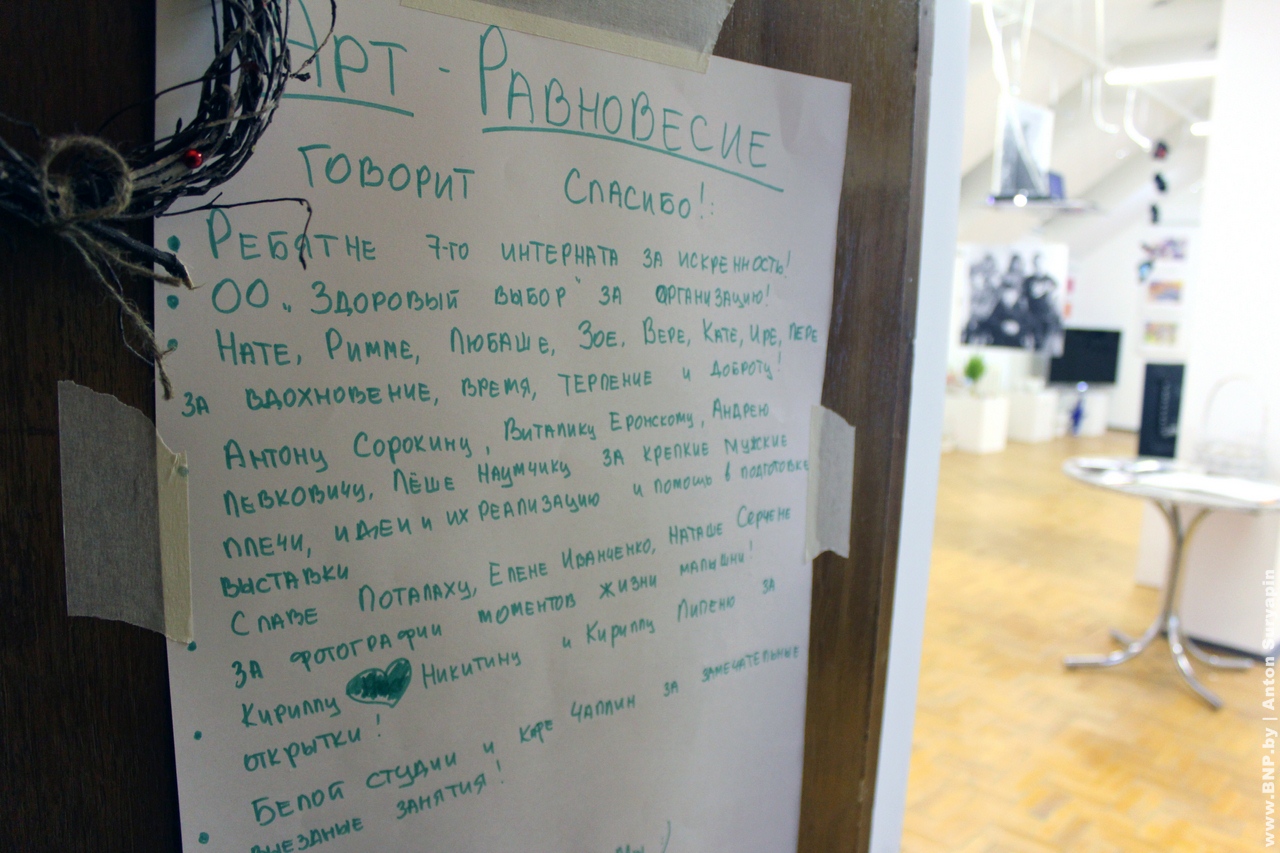 Арт - Равновесие
говорит Спасибо!:
• Ребятне 7-го интерната за искренность!
• ОО „Здоровый выбор" за организацию!
• Нате, Римме, Любаше, Зое, Вере, Кате, Ире, Лере
за вдохновение, время, терпение и доброту!
• Антону Сорокину, Виталику Еронскому, Андрею
Левковичу, Лёше Наумчику за крепкие мужские
плечи, идеи и их реализацию и помощь в подготовке
выставки
• Славе Поталаху, Елене Иванченко, Наташе Серчене
за фотографии моментов жизни малышни!
• Кириллу Никитину и Кириллу Липеню за
открытки!
• Белой студии и Каре Чаплин за замечательные
выездные занятия!
www.BNP.by | Anton Suryapin